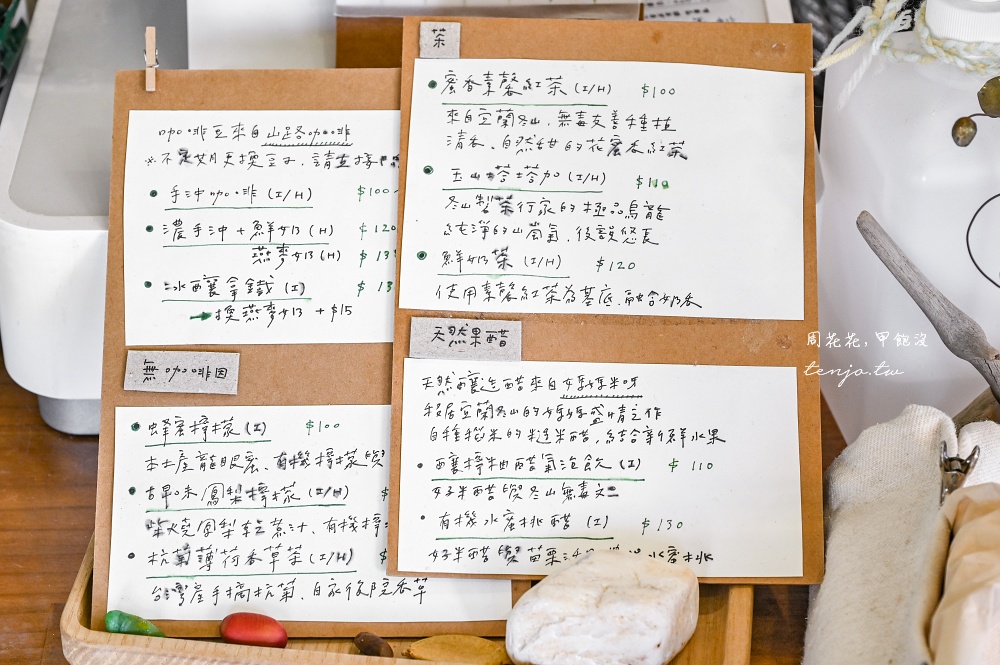 咖啡豆來自山路咖啡
※不定期更換豆子,請直接
• 手沖咖啡 (I/H) $100
• 濃手沖+鮮奶 (H) $120
燕麥奶 (H) $13
• 冰釀拿鐵 (I) $13
→ 換燕麥奶 +$15
無咖啡因
• 蜂蜜檸檬 (I) $100
本土產龍眼蜜、有機檸檬
• 古早味鳳梨檸檬 (I/H) $
柴燒鳳梨乾煮汁、有機檸
• 杭菊薄荷香草茶 (I/H) $
台灣產手摘杭菊、自家後院香草
茶
• 蜜香素馨紅茶 (I/H) $100
來自宜蘭冬山,無毒友善種植
清香、自然甜的花蜜香紅茶
• 玉山塔塔加 (I/H) $110
冬山製茶行家的極品烏龍
純淨的山嵐氣,後韻悠長
• 鮮奶茶 (I/H) $120
使用素馨紅茶為基底,融合奶香
天然果醋
天然釀造醋來自好媽媽米呀
移居宜蘭冬山的媽媽盛情之作
自種稻米的糙米醋,結合新鮮水果
• 釀檸柚醋氣泡飲 (I) $110
好米醋與冬山無毒文旦
• 有機水蜜桃醋 (I) $130
好米醋與苗栗 水蜜桃
周花花,甲飽沒
tenjo.tw